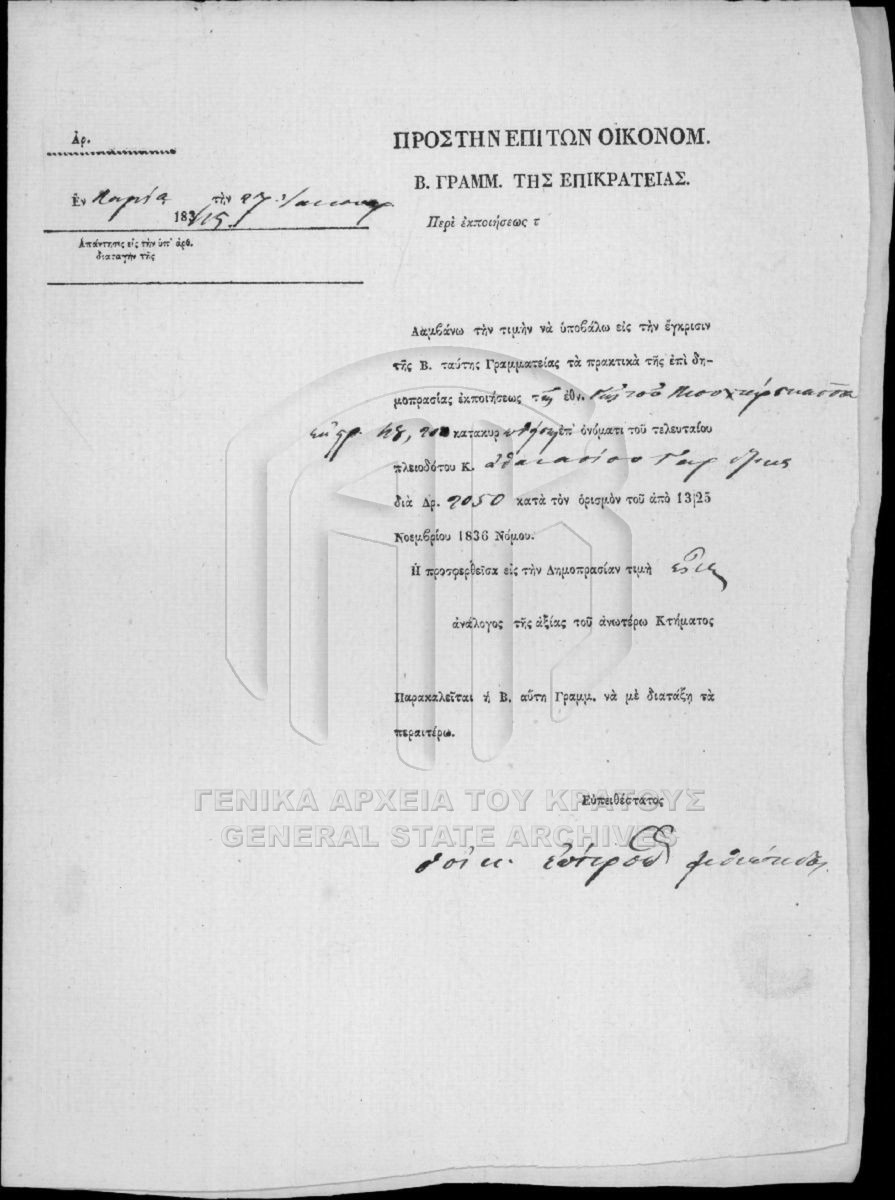 Ἀρ.
Ἐν Λαμία τὴν 27
183
Ἀπάντησις εἰς τὴν ὑπ' ἀρθ.
διαταγὴν τῆς
ΠΡΟΣ ΤΗΝ ΕΠΙ ΤΩΝ ΟΙΚΟΝΟΜ.
Β. ΓΡΑΜΜ. ΤΗΣ ΕΠΙΚΡΑΤΕΙΑΣ.
Περὶ ἐκποιήσεως τ
Λαμβάνω τὴν τιμὴν νὰ ὑποβάλω εἰς τὴν ἔγκρισιν
τῆς Β. ταύτης Γραμματείας τὰ πρακτικὰ τῆς ἐπὶ δη-
μοπρασίας ἐκποιήσεως τῆς ἐθν.
κατακυρ ἐπ' ὀνόματι τοῦ τελευταίου
πλειοδότου Κ. Ἀθανασίου
διὰ Δρ. 2050 κατὰ τὸν ὁρισμὸν τοῦ ἀπὸ 13|25
Νοεμβρίου 1836 Νόμου.
Ἡ προσφερθεῖσα εἰς τὴν Δημοπρασίαν τιμὴ εἶναι
ἀνάλογος τῆς ἀξίας τοῦ ἀνωτέρω Κτήματος
Παρακαλεῖται ἡ Β. αὕτη Γραμμ. νὰ μὲ διατάξῃ τὰ
περαιτέρω.
Εὐπειθέστατος
ΓΕΝΙΚΑ ΑΡΧΕΙΑ ΤΟΥ ΚΡΑΤΟΥΣ
GENERAL STATE ARCHIVES